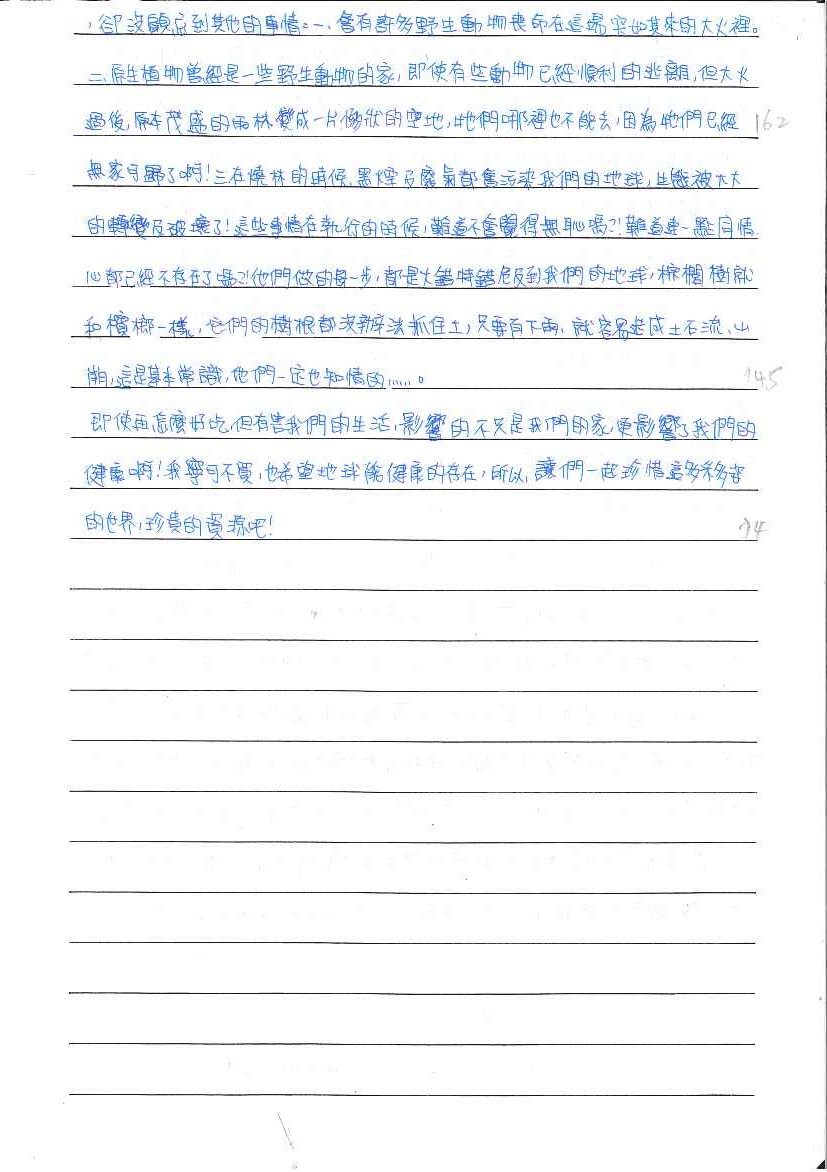 ，卻沒顧忌到其他的事情：一、會有許多野生動物喪命在這場突如其來的大火裡。
二、原生植物曾經是一些野生動物的家，即使有些動物已經順利的逃離，但大火
過後，原本茂盛的雨林變成一片慟狀的空地，牠們哪裡也不能去，因為牠們已經 162
無家可歸了啊！三在燒林的時候，黑煙及廢氣都會污染我們的地球，生態被大大
的轉變及破壞了！這些事情在執行的時候，難道不會覺得無恥嗎？！難道連一點同情
心都已經不存在了嗎？！他們做的每一步，都是大錯特錯危及到我們的地球，棕櫚樹就
和檳榔一樣，它們的樹根都沒辦法抓住土，只要有下雨，就容易造成土石流、山
崩，這是基本常識，他們一定也知情的……。 145
即使再怎麼好吃，但有害我們的生活，影響的不只是我們的家，更影響了我們的
健康啊！我寧可不買，也希望地球能健康的存在，所以，讓們一起珍惜這多采多姿
的世界，珍貴的資源吧！ 74